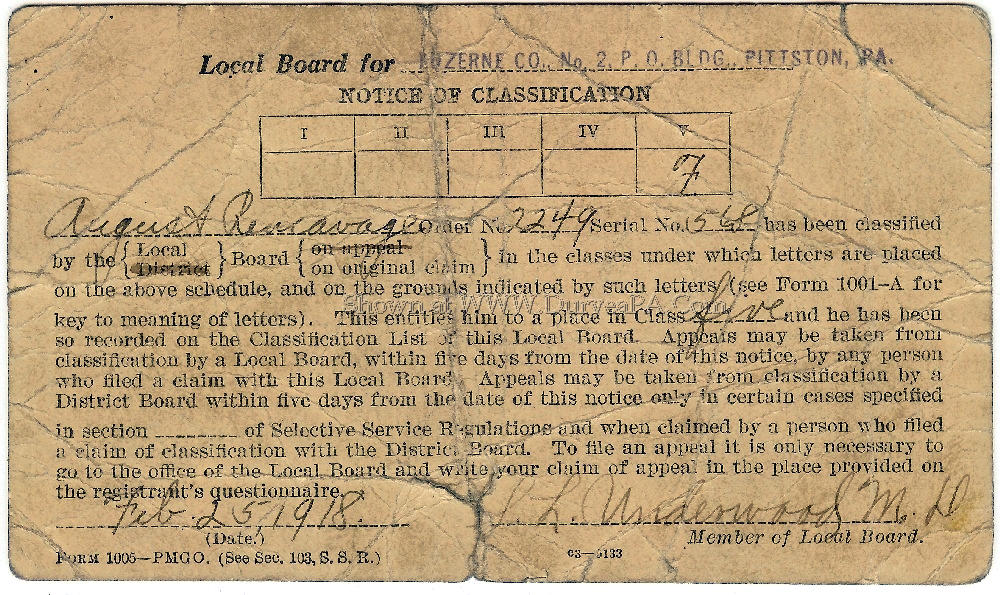 Local Board for LUZERNE CO., No. 2, P. O. BLDG., PITTSTON, PA.
NOTICE OF CLASSIFICATION
I II III IV V
F
August Remavage Order No. 2249 Serial No. 568 has been classified
by the { Local District } Board { on appeal on original claim } in the classes under which letters are placed
on the above schedule, and on the grounds indicated by such letters (see Form 1001–A for
Shown at WWW.DuryeaPA.Com
key to meaning of letters). This entitles him to a place in Class five and he has been
so recorded on the Classification List of this Local Board. Appeals may be taken from
classification by a Local Board, within five days from the date of this notice, by any person
who filed a claim with this Local Board. Appeals may be taken from classification by a
District Board within five days from the date of this notice only in certain cases specified
in section _________ of Selective Service Regulations and when claimed by a person who filed
a claim of classification with the District Board. To file an appeal it is only necessary to
go to the office of the Local Board and write your claim of appeal in the place provided on
the registrant's questionnaire.
Feb 25, 1918. L. Underwood M. D
(Date.) Member of Local Board.
FORM 1005—PMGO. (See Sec. 103, S. S. R.) 03—5133